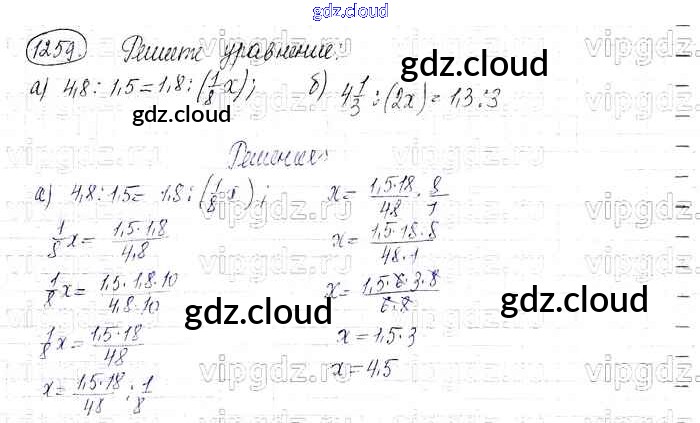 gdz.cloud
1259. Решите уравнение:
а) 4,8 : 1,5 = 1,8 : (1/8 x); б) 4 1/3 : (2x) = 1,3 : 3
gdz.cloud
gdz.cloud
Решение:
а) 4,8 : 1,5 = 1,8 : (1/8 x);
1/8 x = 1,5·1,8/4,8
1/8 x = 1,5·1,8·10/4,8·10
1/8 x = 1,5·18/48
x = 1,5·18/48 : 1/8
x = 1,5·18/48 · 8/1
x = 1,5·18·8/48·1
x = 1,5·6·3·8/6·8
x = 1,5·3
x = 4,5
gdz.cloud
gdz.cloud
vipgdz.ru